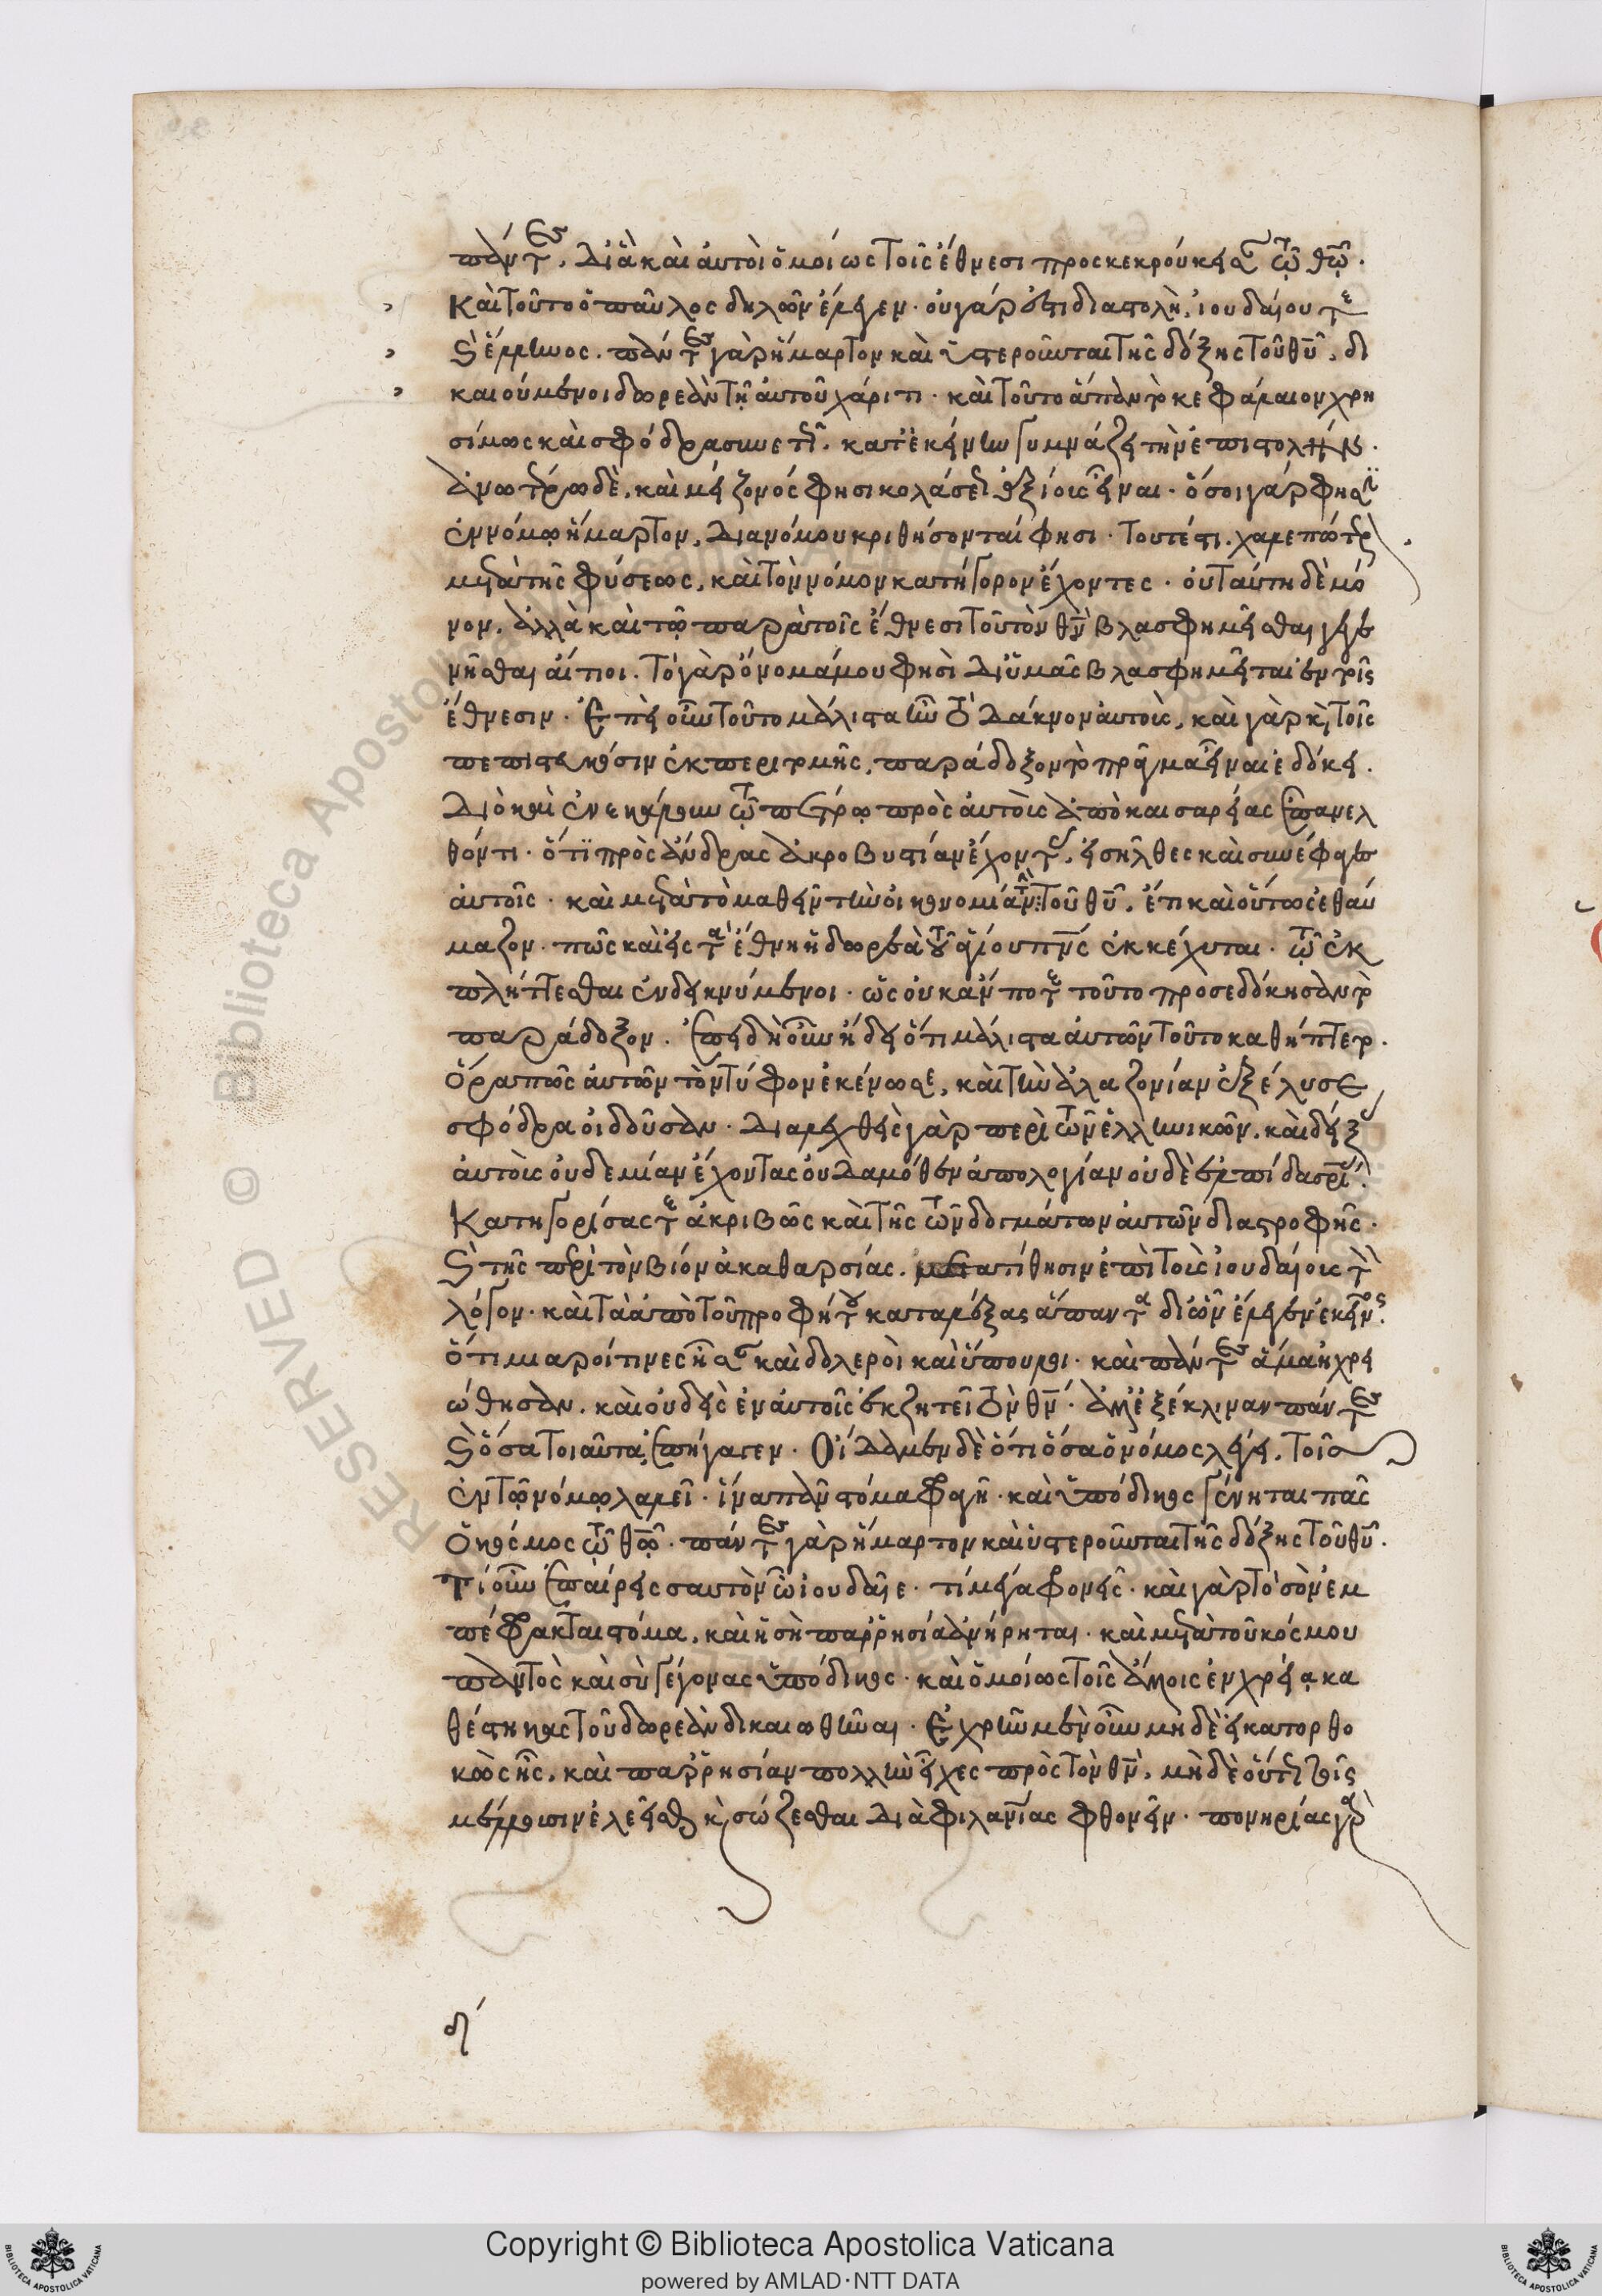 πάντες. δι' ἃ καὶ αὐτοὶ ὁμοίως τοῖς ἔθνεσι προσκεκρούκασι τῷ θῷ.
καὶ τοῦτο ὁ παῦλος δηλῶν ἔλεγεν. οὐ γάρ ἐστι διαστολὴ, ἰουδαίου τε
καὶ ἕλληνος. πάντες γὰρ ἥμαρτον καὶ ὑστεροῦνται τῆς δόξης τοῦ θυ, δι
καιούμενοι δωρεὰν τῇ αὐτοῦ χάριτι. καὶ τοῦτο ἅπαν τὸ κεφάλαιον χρη
σίμως καὶ σφόδρα συνετῶς κατ' ἐκείνην γυμνάζει τὴν ἐπιστολήν.
ἀνωτέρω δὲ, καὶ μείζονός φησι κολάσεως ἀξίους εἶναι. ὅσοι γάρ φησιν
ἐν νόμῳ ἥμαρτον, διὰ νόμου κριθήσονταί φησι. τουτέστι. χαλεπώτερον
μετὰ τῆς φύσεως, καὶ τὸν νόμον κατήγορον ἔχοντες. οὐ ταύτῃ δὲ μό
νον, ἀλλὰ καὶ τῷ παρὰ τοῖς ἔθνεσι τοῦτον θν βλασφημεῖσθαι γεγε
νῆσθαι αἴτιοι. τὸ γὰρ ὄνομά μου φησὶ δι' ὑμᾶς βλασφημεῖται ἐν τοῖς
ἔθνεσιν. ἐπεὶ οὖν τοῦτο μάλιστα ἦν τὸ δάκνον αὐτοὺς, καὶ γὰρ καὶ τοῖς
πεπιστευκόσιν ἐκ περιτομῆς, παράδοξον τὸ πρᾶγμα εἶναι ἐδόκει.
διὸ καὶ ἐνεκάλουν τῷ πέτρῳ πρὸς αὐτοὺς ἀπὸ καισαρείας ἐπανελ
θόντι. ὅτι πρὸς ἄνδρας ἀκροβυστίαν ἔχοντας, εἰσῆλθες καὶ συνέφαγες
αὐτοῖς. καὶ μετὰ τὸ μαθεῖν τὴν οἰκονομίαν τοῦ θυ, ἔτι καὶ οὕτως ἐθαύ
μαζον. πῶς καὶ εἰς τὰ ἔθνη ἡ δωρεὰ τοῦ ἁγίου πνς ἐκκέχυται. τῷ ἐκ
πλήττεσθαι ἐνδεικνύμενοι. ὡς οὐκ ἄν ποτε τοῦτο προσεδόκησαν τὸ
παράδοξον. ἐπειδὴ οὖν ᾔδει ὅτι μάλιστα αὐτῶν τοῦτο καθήπτετο.
ὅρα πῶς αὐτῶν τὸν τύφον ἐκένωσε, καὶ τὴν ἀλαζονίαν ἐξέλυσε
σφόδρα οἰδοῦσαν. διαλεχθεὶς γὰρ περὶ τῶν ἑλληνικῶν. καὶ δείξας
αὐτοὺς οὐδεμίαν ἔχοντας οὐδαμόθεν ἀπολογίαν οὐδὲ ἐλπίδα σρίας.
κατηγορίσας τε ἀκριβῶς καὶ τῆς τῶν δογμάτων αὐτῶν διαστροφῆς.
καὶ τῆς περὶ τὸν βίον ἀκαθαρσίας. μετατίθησιν ἐπὶ τοὺς ἰουδαίους τὸν
λόγον. καὶ τὰ ἀπὸ τοῦ προφήτου καταλέξας ἅπαντα δι' ὧν ἔλεγεν ἐκεῖνος.
ὅτι μιαροί τινες ἦσαν καὶ δολεροὶ καὶ ὕπουλοι. καὶ πάντες ἅμα ἠχρει
ώθησαν. καὶ οὐδεὶς ἐν αὐτοῖς ἐκζητεῖ τὸν θν. ἀλλ' ἐξέκλιναν πάντες
καὶ ὅσα τοιαῦτα ἐπήγαγεν. οἴδαμεν δὲ ὅτι ὅσα ὁ νόμος λέγει. τοῖς
ἐν τῷ νόμῳ λαλεῖ. ἵνα πᾶν στόμα φραγῇ. καὶ ὑπόδικος γένηται πᾶς
ὁ κόσμος τῷ θῷ. πάντες γὰρ ἥμαρτον καὶ ὑστεροῦνται τῆς δόξης τοῦ θυ.
τί οὖν ἐπαίρεις σαυτὸν ὦ ἰουδαῖε. τί μέγα φονεῖς. καὶ γὰρ τὸ σὸν ἐμ
πέφρακται στόμα, καὶ ἡ σὴ παρρησία ἀνῄρηται. καὶ μετὰ τοῦ κόσμου
παντὸς καὶ σὺ γέγονας ὑπόδικος. καὶ ὁμοίως τοῖς ἄλλοις ἐν χρείᾳ κα
θέστηκας τοῦ δωρεὰν δικαιωθῆναι. ἐχρῆν μὲν οὖν μηδὲ εἰ κατορθο
κὼς ἦς, καὶ παρρησίαν πολλὴν εἶχες πρὸς τὸν θν, μὴδὲ οὕτως τοῖς
μέλλουσιν ἐλεεῖσθαι καὶ σώζεσθαι διὰ φιλανίας φθονεῖν. πονηρίας γὰρ
δι
Copyright © Biblioteca Apostolica Vaticana
powered by AMLAD·NTT DATA